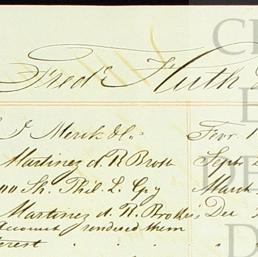 Fredk Huth &
J Merck & Co. Febr 1
Martinez d R Broth Sept
00 Sh. Phil L. Cpy March
Martinez d. R. Brothe Dec
account rendered them
terest